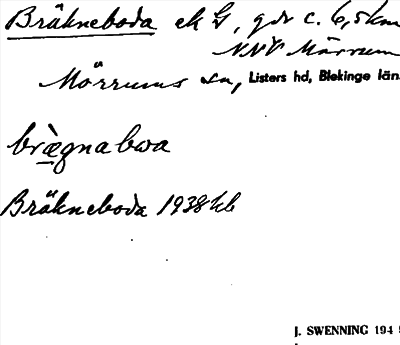 Bräkneboda ek G, gdr c. 6,5 km
NNV Mörrum
Mörrums sn, Listers hd, Blekinge län.
bræ̀gnabωa
Bräkneboda 1938 kb
J. SWENNING 194